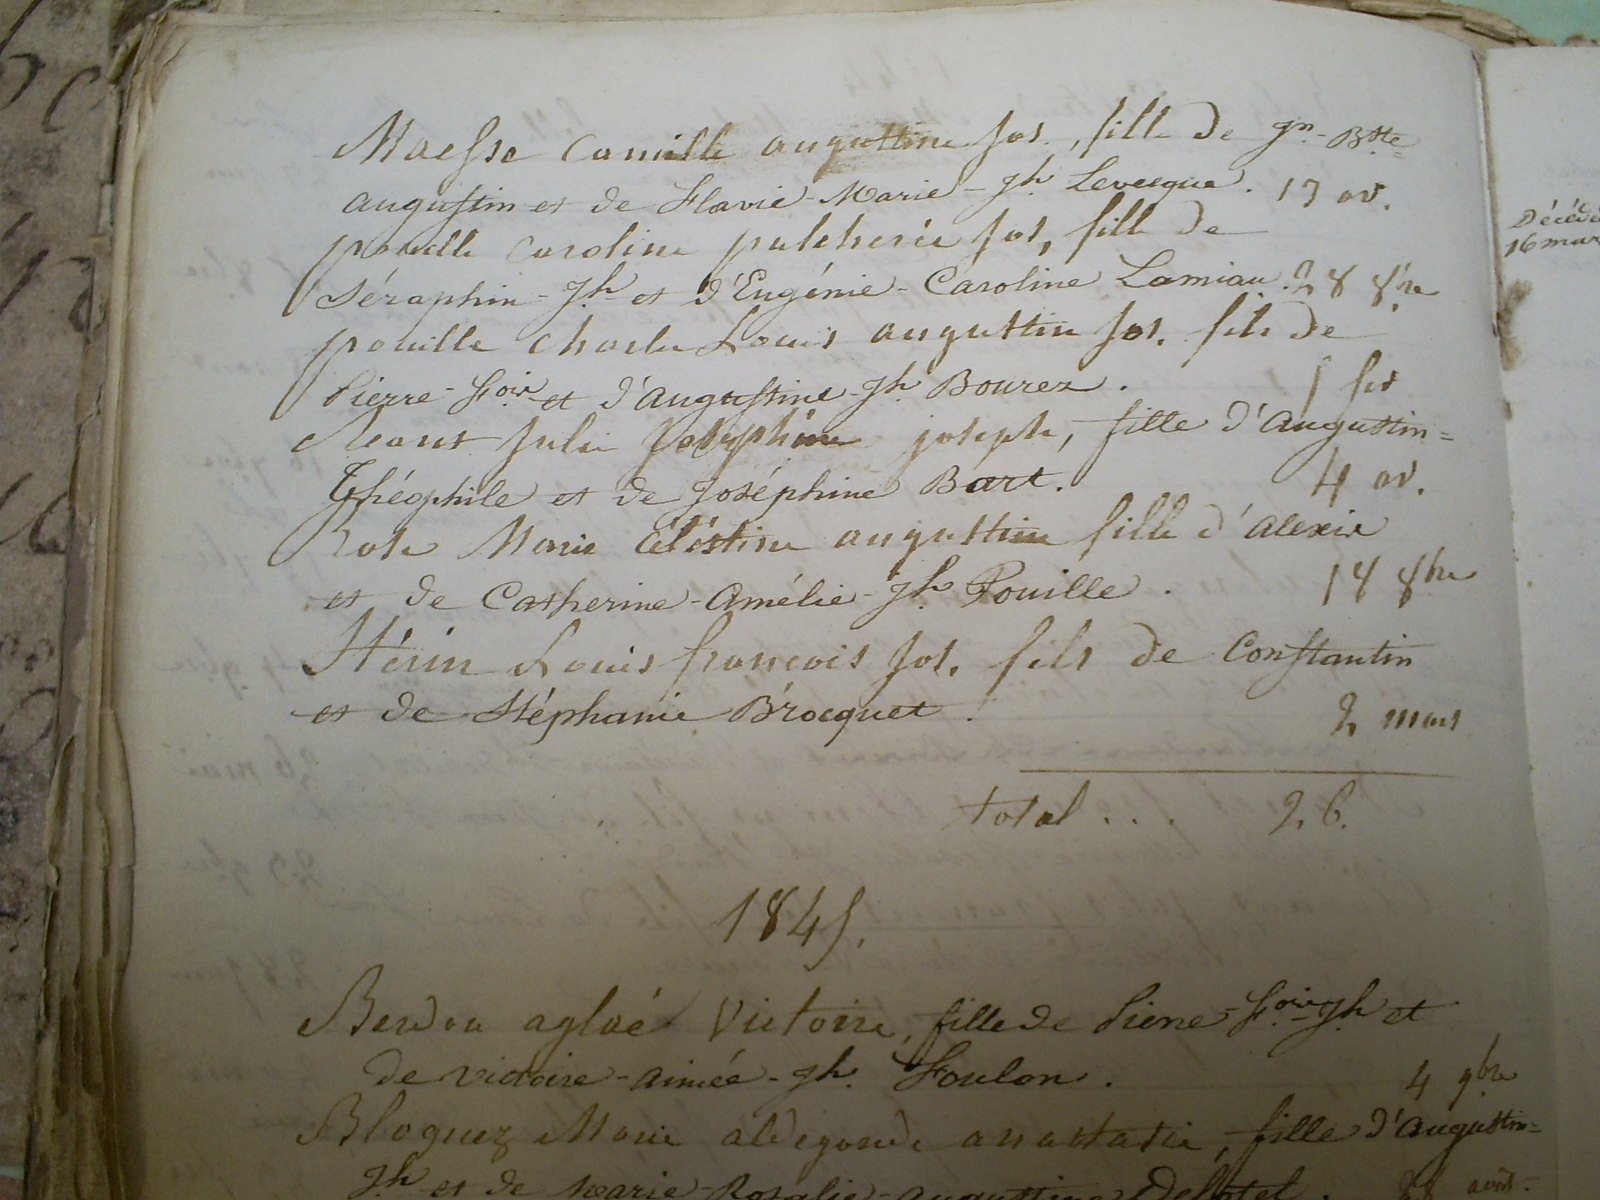 Maesse Camille augustine Jos., fille de Jn-Btte
augustin et de Flavie-Marie-Jh Levecque. 13 av.
pouille Caroline pulcherie Jos, fille de
Séraphin-Jh et d'Eugénie-Caroline Lamiau. 28 8bre
pouille Charles Louis augustin Jos. fils de
Pierre-Fois et d'Augustine-Jh Bourez. 5 fev
Julie Joséphine joseph, fille d'Augustin=
Théophile et de Joséphine Bart. 4 av.
Marie Célestine augustine fille d'Alexis
et de Catherine-Amélie-Jh Pouille. 18 8bre
Hérin Louis françois Jos. fils de Constantin
et de Stéphanie Brocquet. 2 mars
total... 26.
1845.
Berdou aglaé Victoire, fille de Pierre-Fois-Jh et
de victoire-aimée-Jh. Foulon. 4 9bre
Bloquez Marie aldegonde anastasie, fille d'Augustin=
Jh et de Marie-Rosalie-augustine Delotel. avril.
Décédé
16 mar